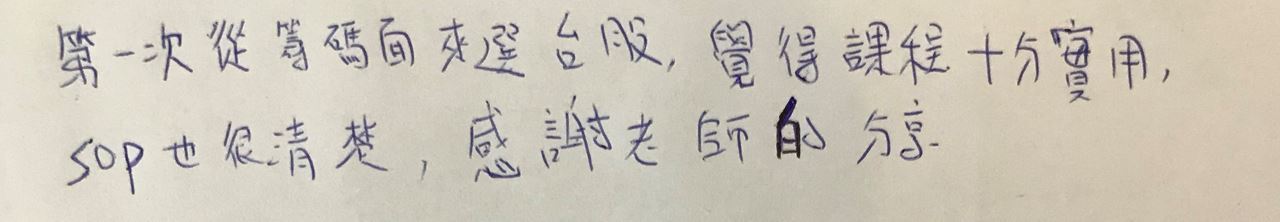 第一次從籌碼面來選台股,覺得課程十分實用,
SOP也很清楚,感謝老師的分享.